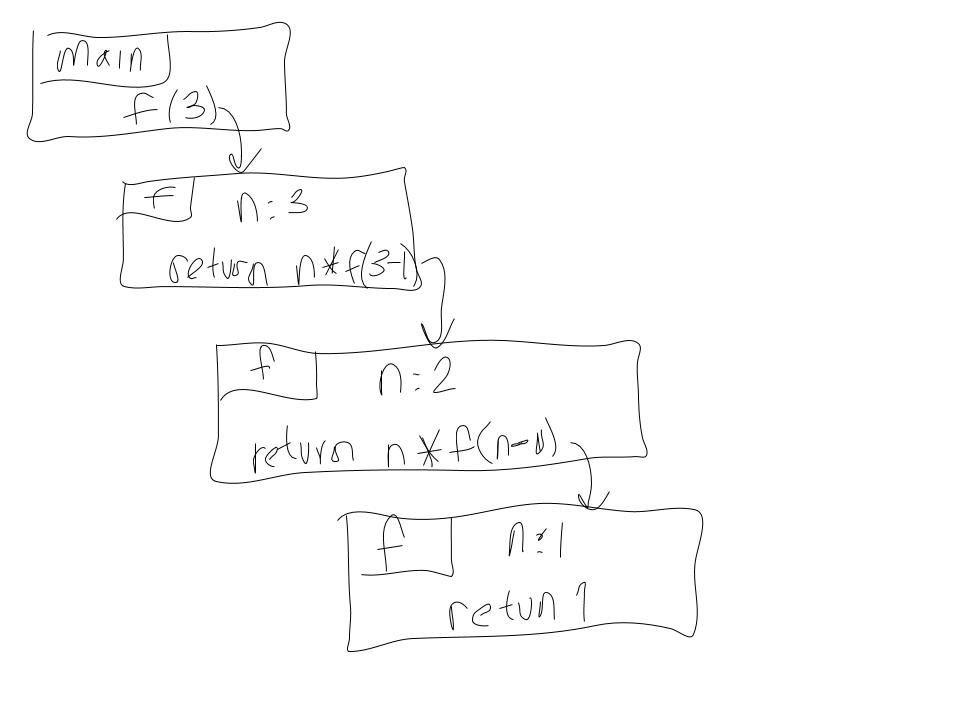 main
f(3)
f
n:3
return n*f(3-1)
f
n:2
return n*f(n-1)
f
n:1
retun 1